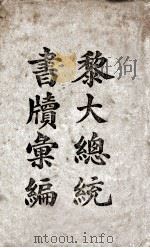 黎大總統
書牘彙編
mtoou.info